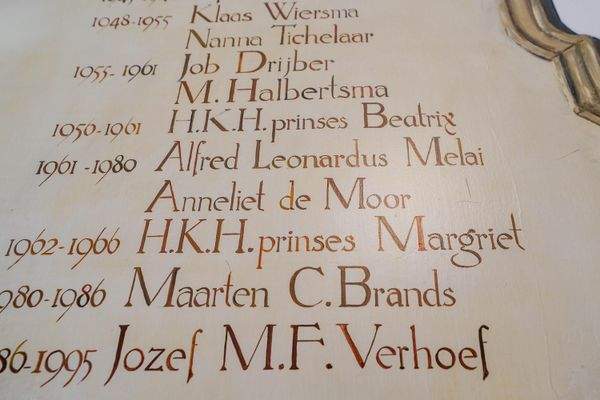 1948-1955 Klaas Wiersma
Nanna Tichelaar
1955-1961 Job Drijber
M. Halbertsma
1956-1961 H.K.H. prinses Beatrix
1961-1980 Alfred Leonardus Melai
Anneliet de Moor
1962-1966 H.K.H. prinses Margriet
980-1986 Maarten C. Brands
86-1995 Jozef M.F. Verhoef